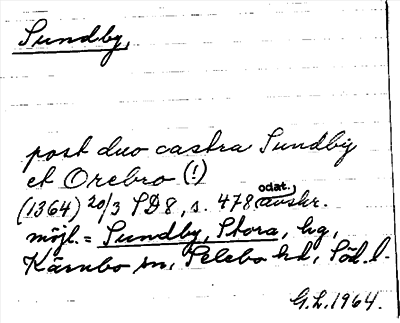 Sundby,
post duo castra Sundby
et Orebro (!)
(1364) 20/3 SD8, s. 478 odat. avskr.
möjl. = Sundby, Stora, hg,
Kärnbo sn, Selebo hd, Söd. l.
G.L. 1964.